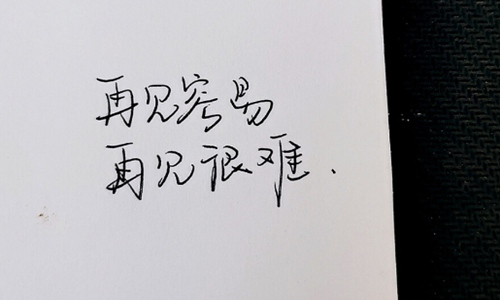 再见容易
再见很难.